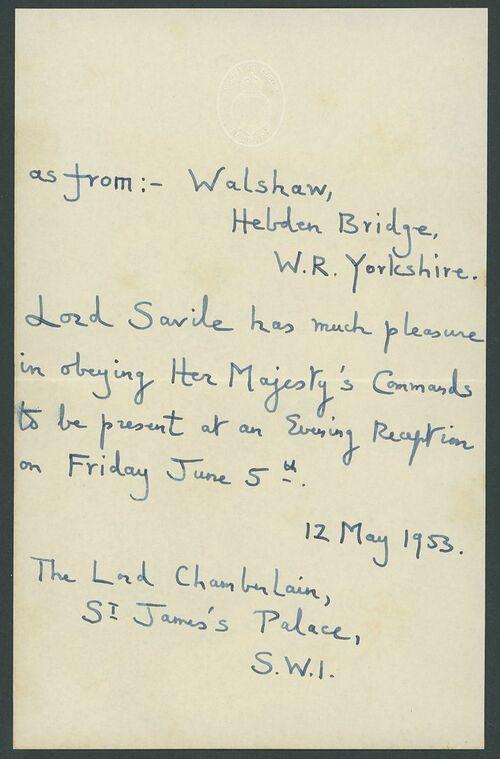 as from:- Walshaw,
Hebden Bridge,
W.R. Yorkshire.
Lord Savile has much pleasure
in obeying Her Majesty's Commands
to be present at an Evening Reception
on Friday June 5th.
12 May 1953.
The Lord Chamberlain,
St James's Palace,
S.W.1.